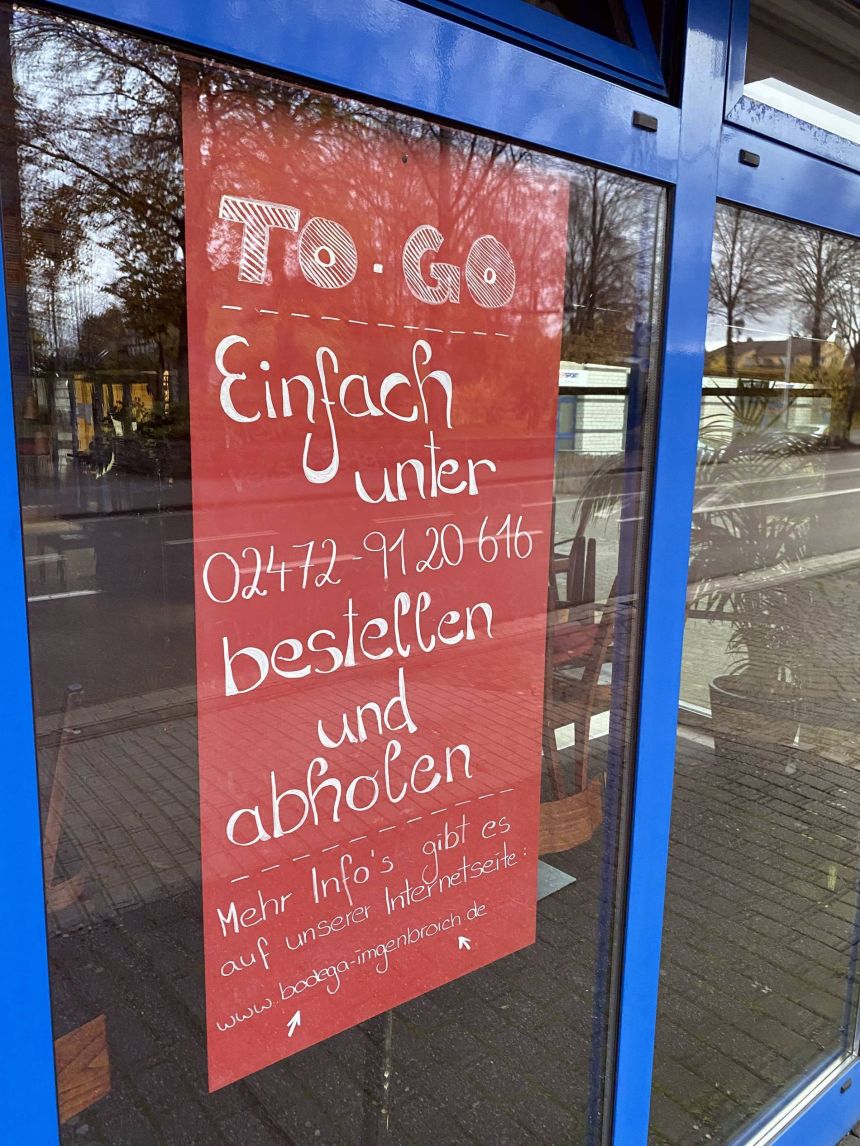 TO·GO
Einfach
unter
02472-9120616
bestellen
und
abholen
Mehr Info's gibt es
auf unserer Internetseite:
www.bodega-imgenbroich.de